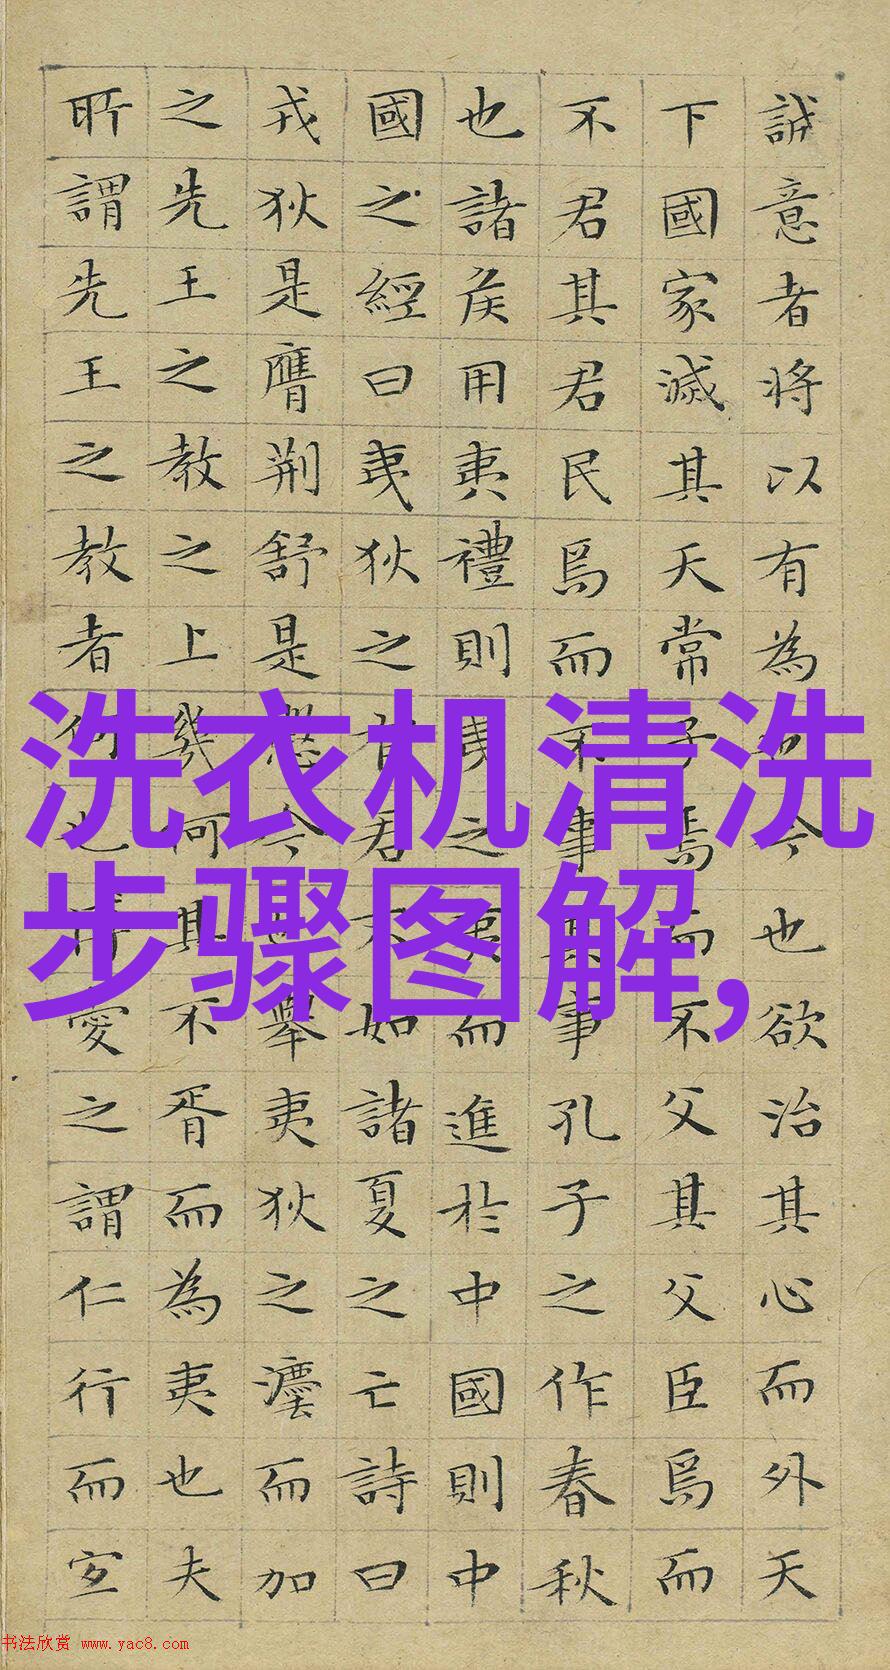 誠意者将以有為也今也欲治其心而外天
下國家滅其天常子焉而不父其父臣焉而
不君其君民焉而不事其事孔子之作春秋
也諸侯用夷禮則夷之夷而進於中國則中
國之經曰夷狄之有君不如諸夏之亡詩曰
戎狄是膺荆舒是懲今也舉夷狄之灋而加
之先王之教之上幾何其不胥而為夷也夫
所謂先王之教者何也博愛之謂仁行而宜
洗衣机清洗
步骤图解,
书法欣赏 www.yac8.com